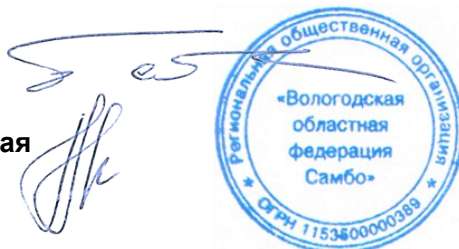 Региональная общественная организация
«Вологодская
областная
федерация
Самбо»
* ОГРН 1153500000389 *
ая